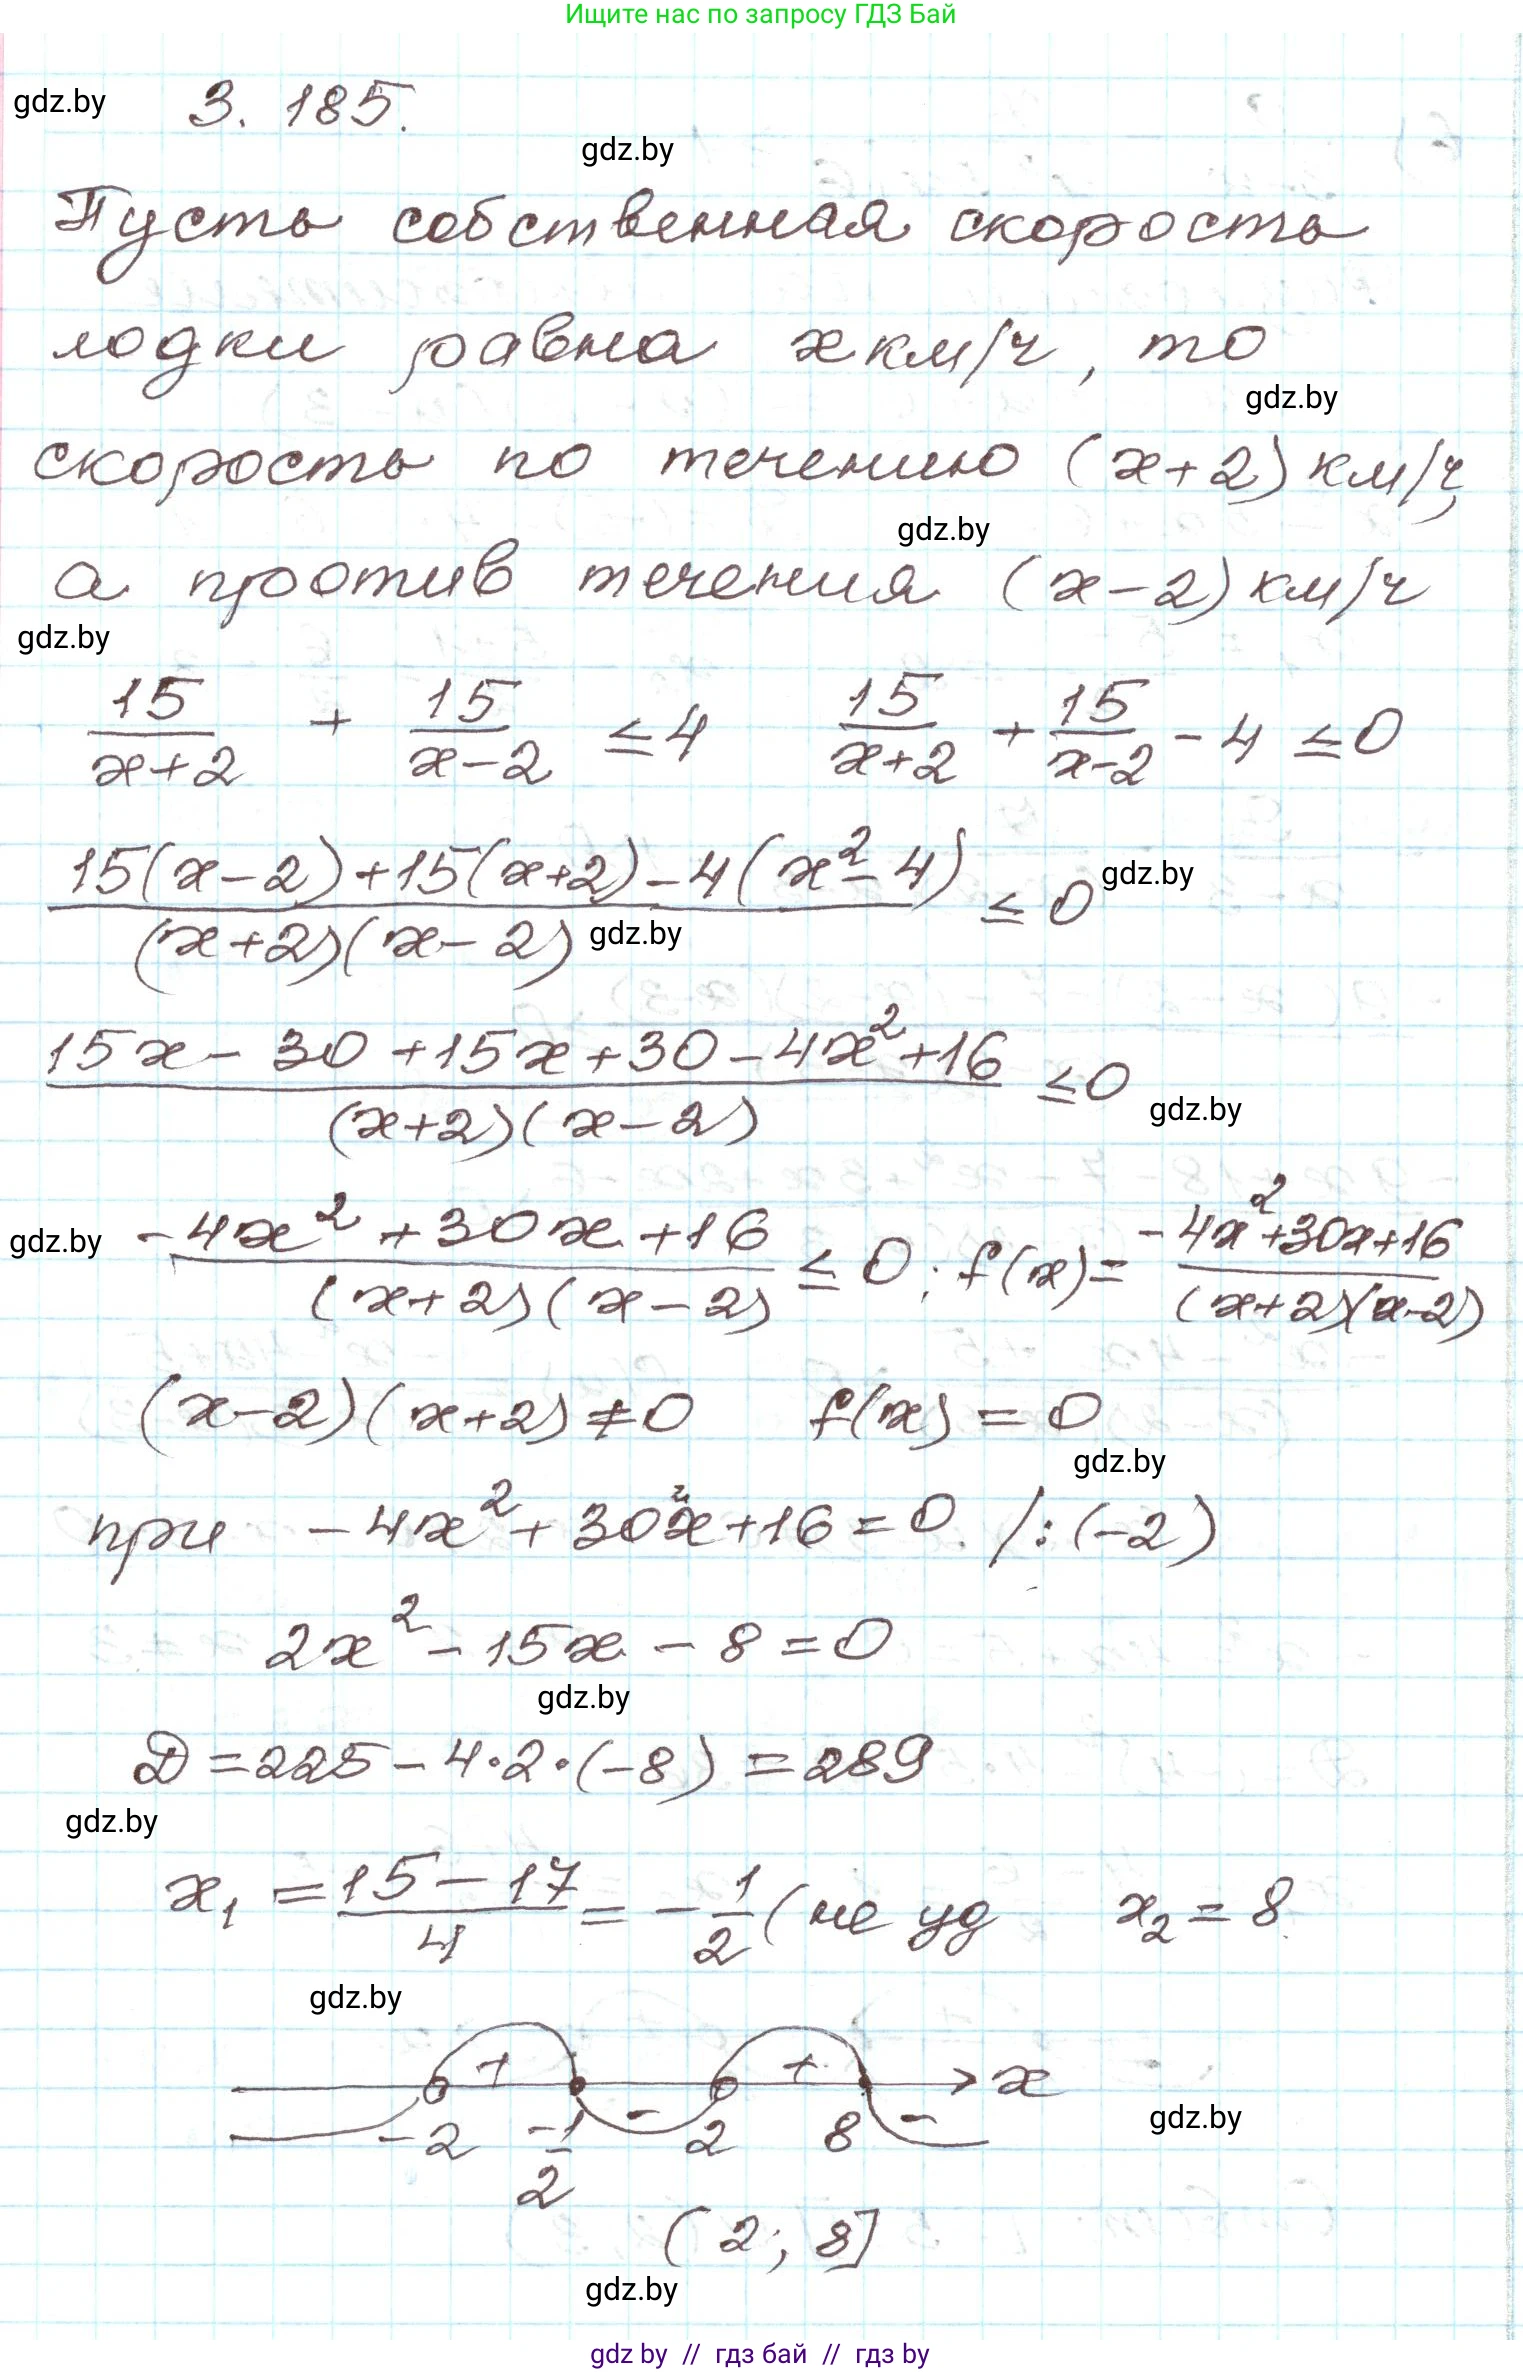 Ищите нас по запросу ГДЗ Бай
gdz.by 3. 185.
gdz.by
Пусть собственная скорость
лодки равна x км/ч, то
gdz.by
скорость по течению (x+2) км/ч,
gdz.by
а против течения (x-2) км/ч
gdz.by
15/(x+2) + 15/(x-2) ≤ 4 15/(x+2) + 15/(x-2) - 4 ≤ 0
(15(x-2)+15(x+2)-4(x²-4))/((x+2)(x-2)) ≤ 0 gdz.by
gdz.by
(15x-30+15x+30-4x²+16)/((x+2)(x-2)) ≤ 0
gdz.by
gdz.by (-4x²+30x+16)/((x+2)(x-2)) ≤ 0; f(x)= (-4x²+30x+16)/((x+2)(x-2))
(x-2)(x+2)≠0 f(x)=0
gdz.by
при -4x²+30x+16=0 /:(-2)
2x²-15x-8=0
gdz.by
D=225-4·2·(-8)=289
gdz.by
x₁=(15-17)/4=-1/2 (не уд x₂=8
gdz.by
+ + x
-2 -1/2 - 2 8 -
gdz.by
(2; 8]
gdz.by
gdz by // гдз бай // гдз by